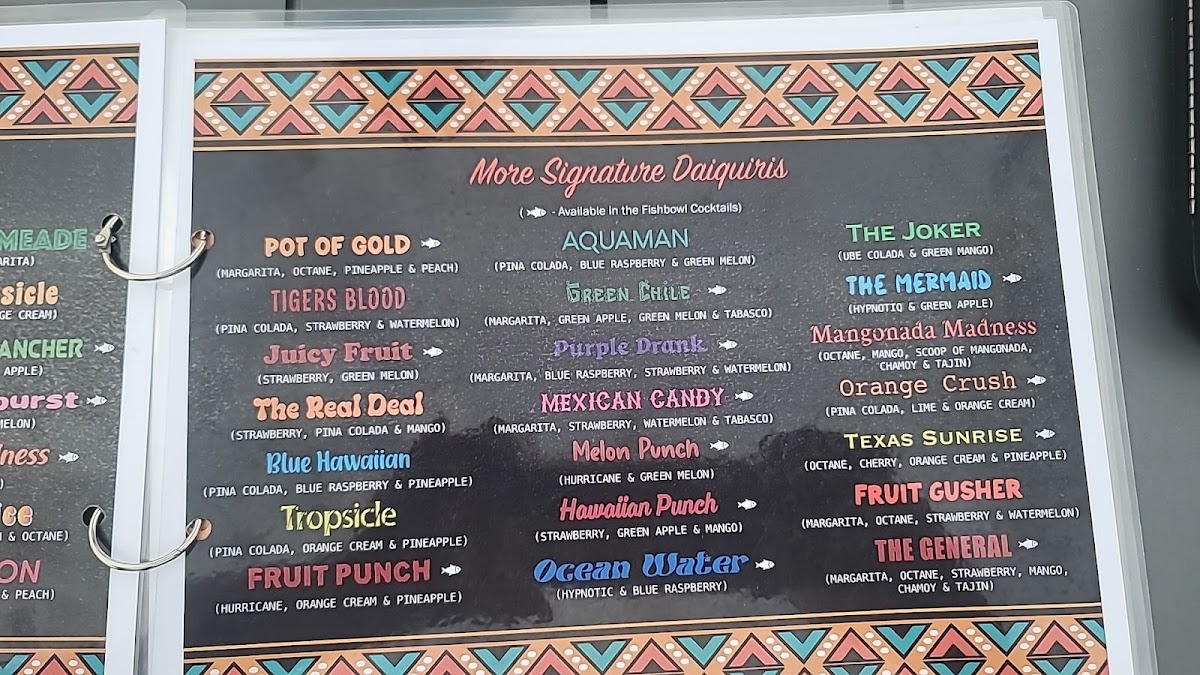 MEADE
ARITA)
sicle
GE CREAM)
ANCHER
APPLE)
burst
MELON)
ness
)
ce
N & OCTANE)
ON
& PEACH)
More Signature Daiquiris
( - Available in the Fishbowl Cocktails)
POT OF GOLD
(MARGARITA, OCTANE, PINEAPPLE & PEACH)
TIGERS BLOOD
(PINA COLADA, STRAWBERRY & WATERMELON)
Juicy Fruit
(STRAWBERRY, GREEN MELON)
The Real Deal
(STRAWBERRY, PINA COLADA & MANGO)
Blue Hawaiian
(PINA COLADA, BLUE RASPBERRY & PINEAPPLE)
Tropsicle
(PINA COLADA, ORANGE CREAM & PINEAPPLE)
FRUIT PUNCH
(HURRICANE, ORANGE CREAM & PINEAPPLE)
AQUAMAN
(PINA COLADA, BLUE RASPBERRY & GREEN MELON)
Green Chile
(MARGARITA, GREEN APPLE, GREEN MELON & TABASCO)
Purple Drank
(MARGARITA, BLUE RASPBERRY, STRAWBERRY & WATERMELON)
MEXICAN CANDY
(MARGARITA, STRAWBERRY, WATERMELON & TABASCO)
Melon Punch
(HURRICANE & GREEN MELON)
Hawaiian Punch
(STRAWBERRY, GREEN APPLE & MANGO)
Ocean Water
(HYPNOTIC & BLUE RASPBERRY)
THE JOKER
(UBE COLADA & GREEN MANGO)
THE MERMAID
(HYPNOTIQ & GREEN APPLE)
Mangonada Madness
(OCTANE, MANGO, SCOOP OF MANGONADA,
CHAMOY & TAJIN)
Orange Crush
(PINA COLADA, LIME & ORANGE CREAM)
TEXAS SUNRISE
(OCTANE, CHERRY, ORANGE CREAM & PINEAPPLE)
FRUIT GUSHER
(MARGARITA, OCTANE, STRAWBERRY & WATERMELON)
THE GENERAL
(MARGARITA, OCTANE, STRAWBERRY, MANGO,
CHAMOY & TAJIN)